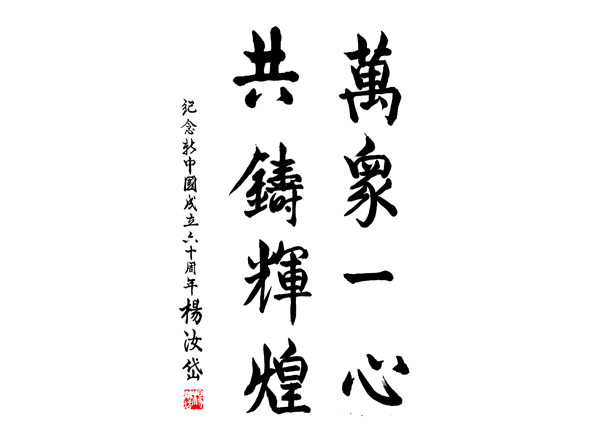 萬眾一心
共鑄輝煌
紀念新中國成立六十周年 楊汝岱